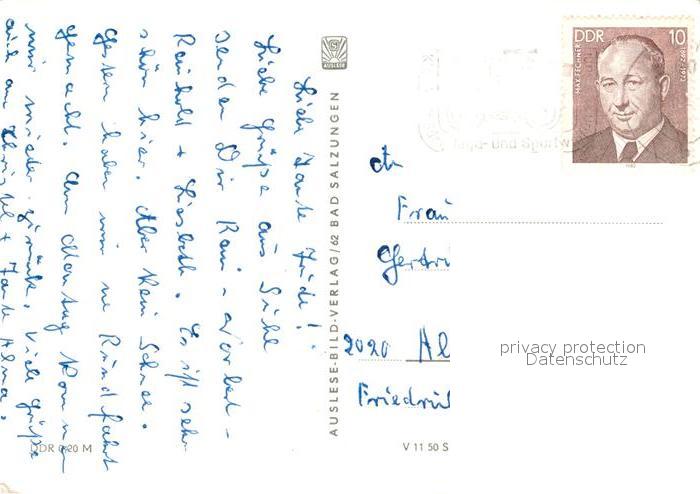 Liebe Tante Friedel!
Liebe Grüße aus Suhl
senden Dir Rani - Norbert -
Reinhold + Liesbeth. Es ist sehr
schön hier. Aber kein Schnee.
Gestern haben wir ne Rundfahrt
gemacht. Am Montag kommen
wir wieder zurück. Viele Grüße
auch an Christel + Tante Alma.
AUSLESE
AUSLESE-BILD-VERLAG/62 BAD SALZUNGEN
DDR 0,20 M
V 11 50 S
DDR 10
MAX FECHNER
1892-1973
1982
und Sportw
An
Frau
Gertru
2020 Al
Friedric
privacy protection
Datenschutz